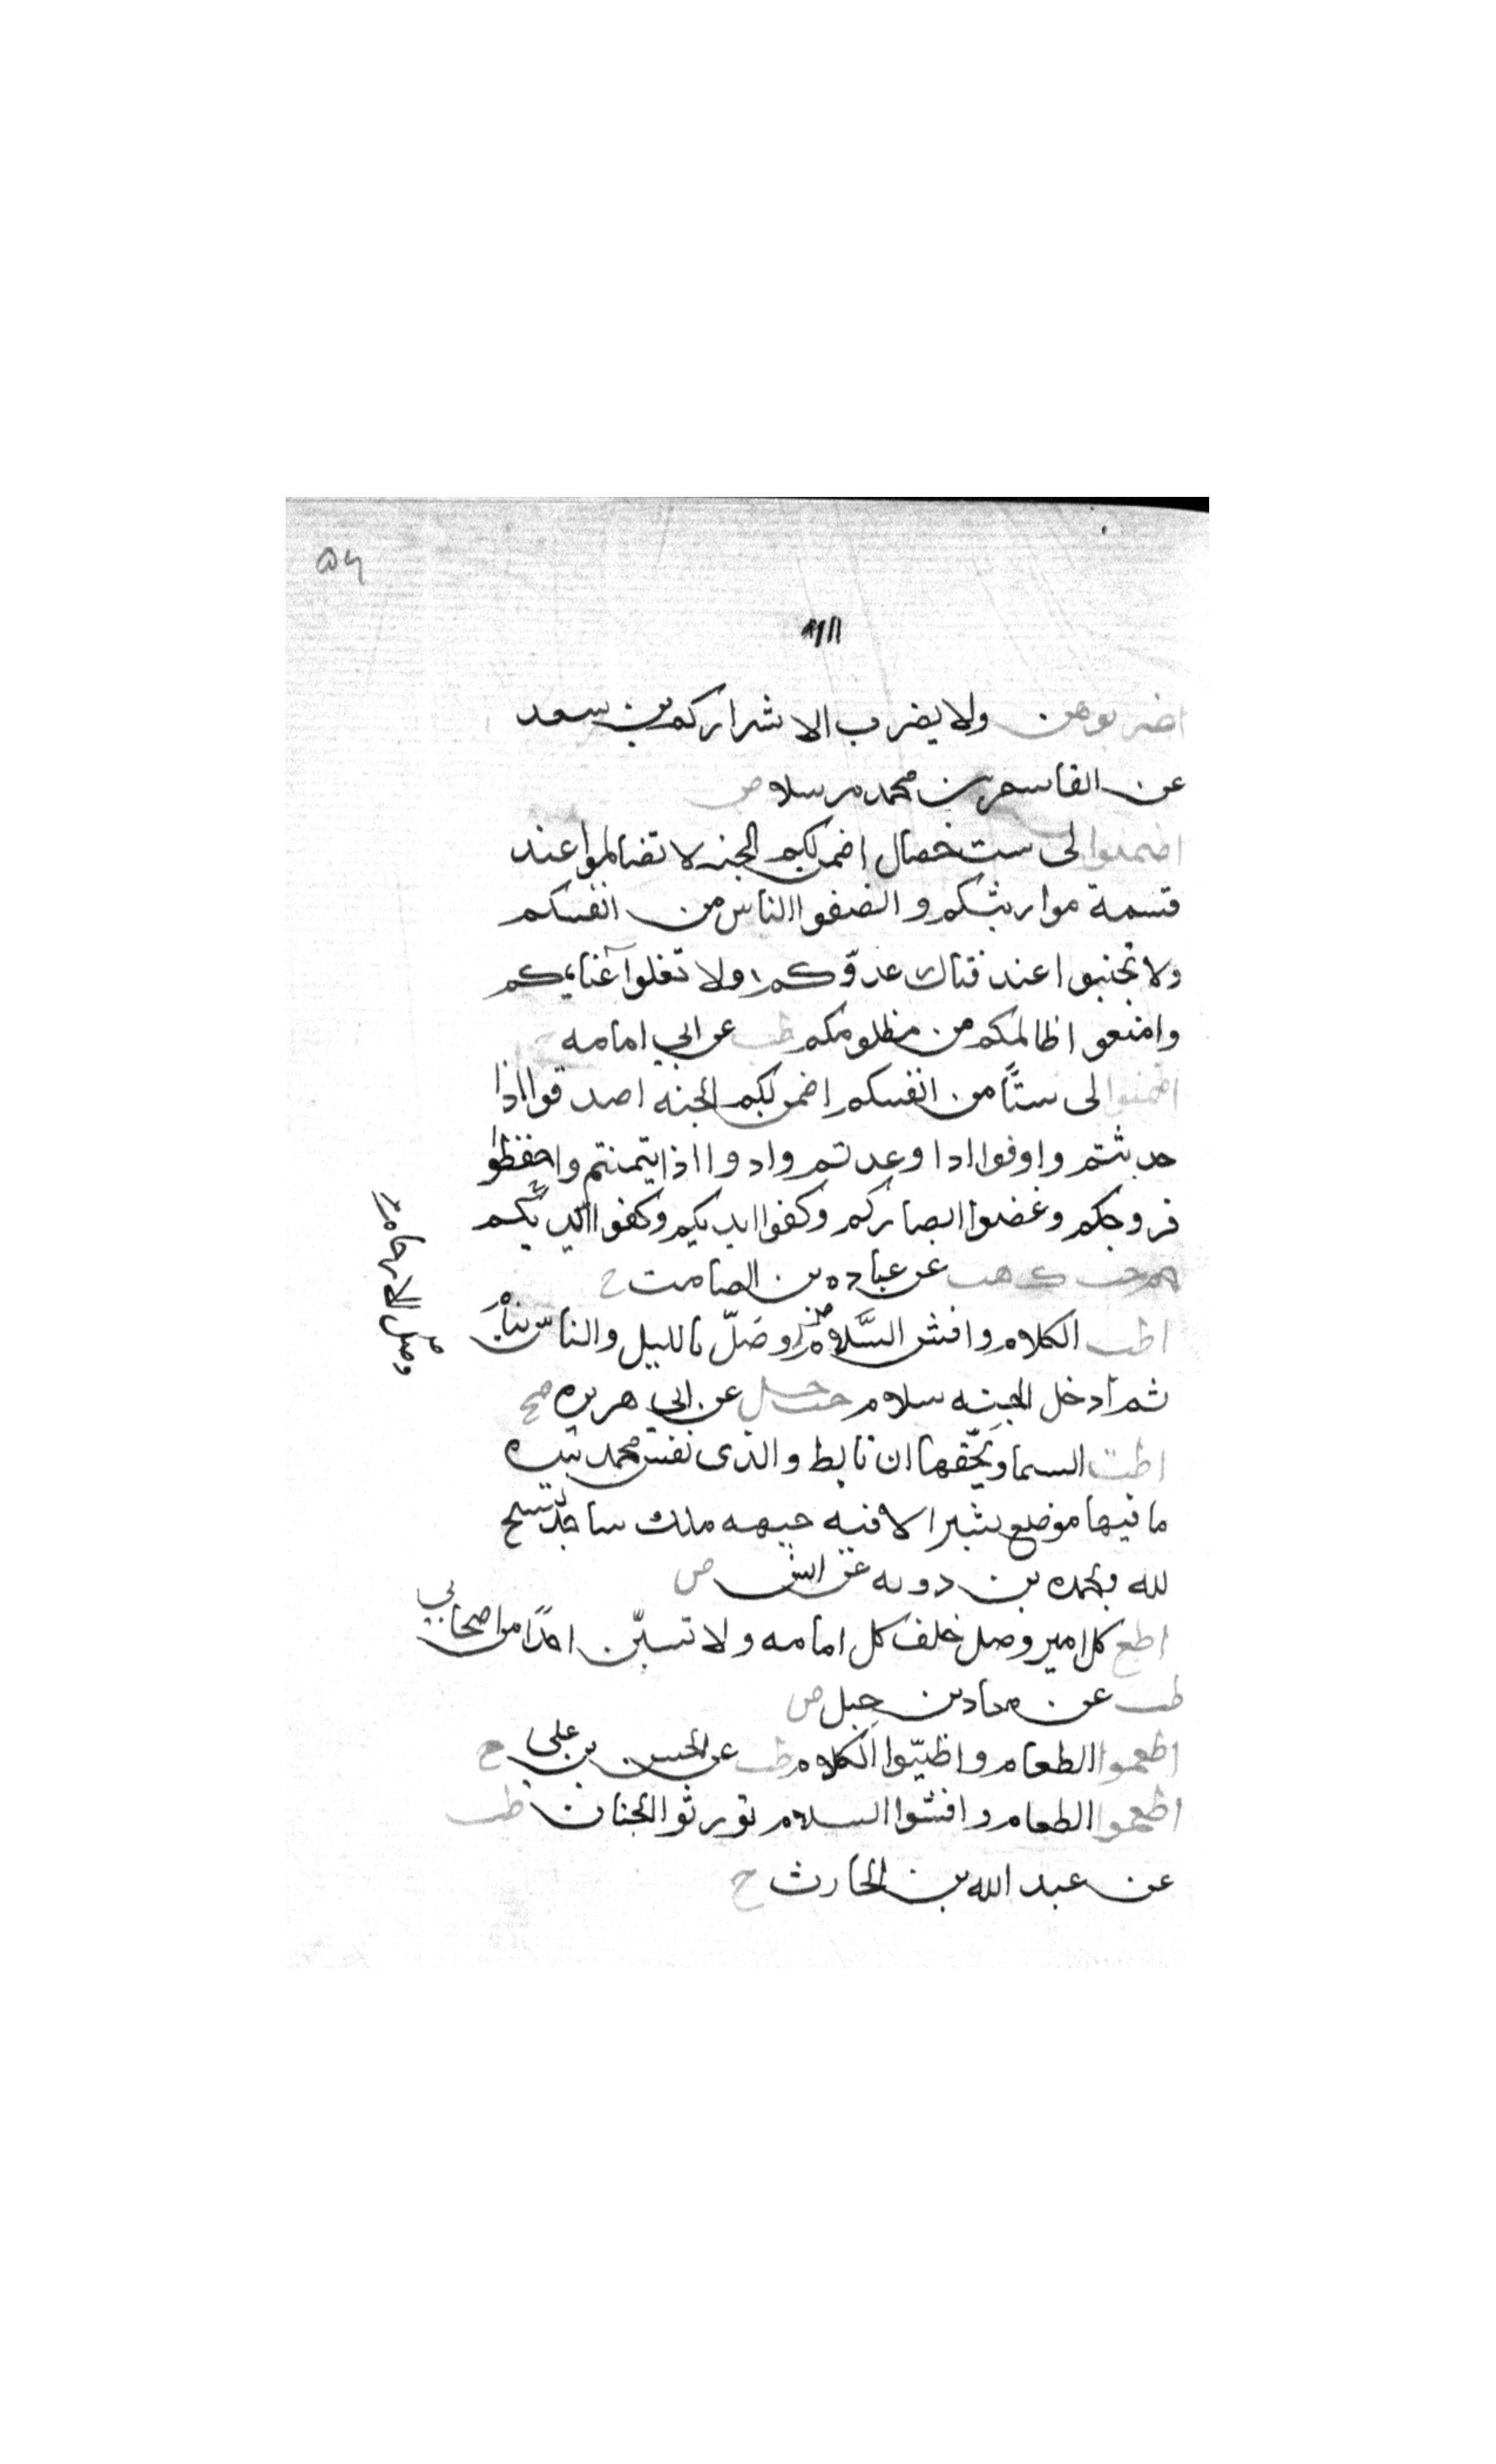 اضربوهن ولا يضرب الا شراركم بن سعد
عن القاسم بن محمد مرسلا ض
اضمنوا لى ست خصال اضمن لكم الجنه لا تضالموا عند
قسمة مواريثكم وانصفوا الناس من انفسكم
ولا تجنبوا عند قتال عدوّكم ولا تغلوا غنايمكم
وامنعوا ظالمكم من مظلومكم طب عن ابي امامه
اضمنوا لى ستًّا من انفسكم اضمن لكم الجنه اصدقوا اذا
حدثتم واوفوا اذا وعدتم وادوا اذا ايتمنتم واحفظوا
فروجكم وغضوا ابصاركم وكفوا ايديكم وكفوا ايديكم
حم حب ك هب عن عباده بن الصامت ح
اطب الكلام وافش السَّلام وصَلّ بالليل والناس نيام
وصل الارحام صح
ثم ادخل الجنه بسلام حب حل عن ابى هريره صح
اطت السما ويحقها ان تايط والذى نفس محمد بيده
ما فيها موضع شبر الا فيه جبهه ملك ساجد يسبح
لله وبحمده بن دويه عن انس ض
اطع كل امير وصل خلف كل امامه ولا تسبّن احدًا من اصحابي
طب عن معاد بن جبل ض
اطعموا الطعام واطيّبوا الكلام طب عن الحسن بن على ح
اطعموا الطعام وافشوا السلام تورثوا الجنان طب
عن عبد الله بن الحارث ح